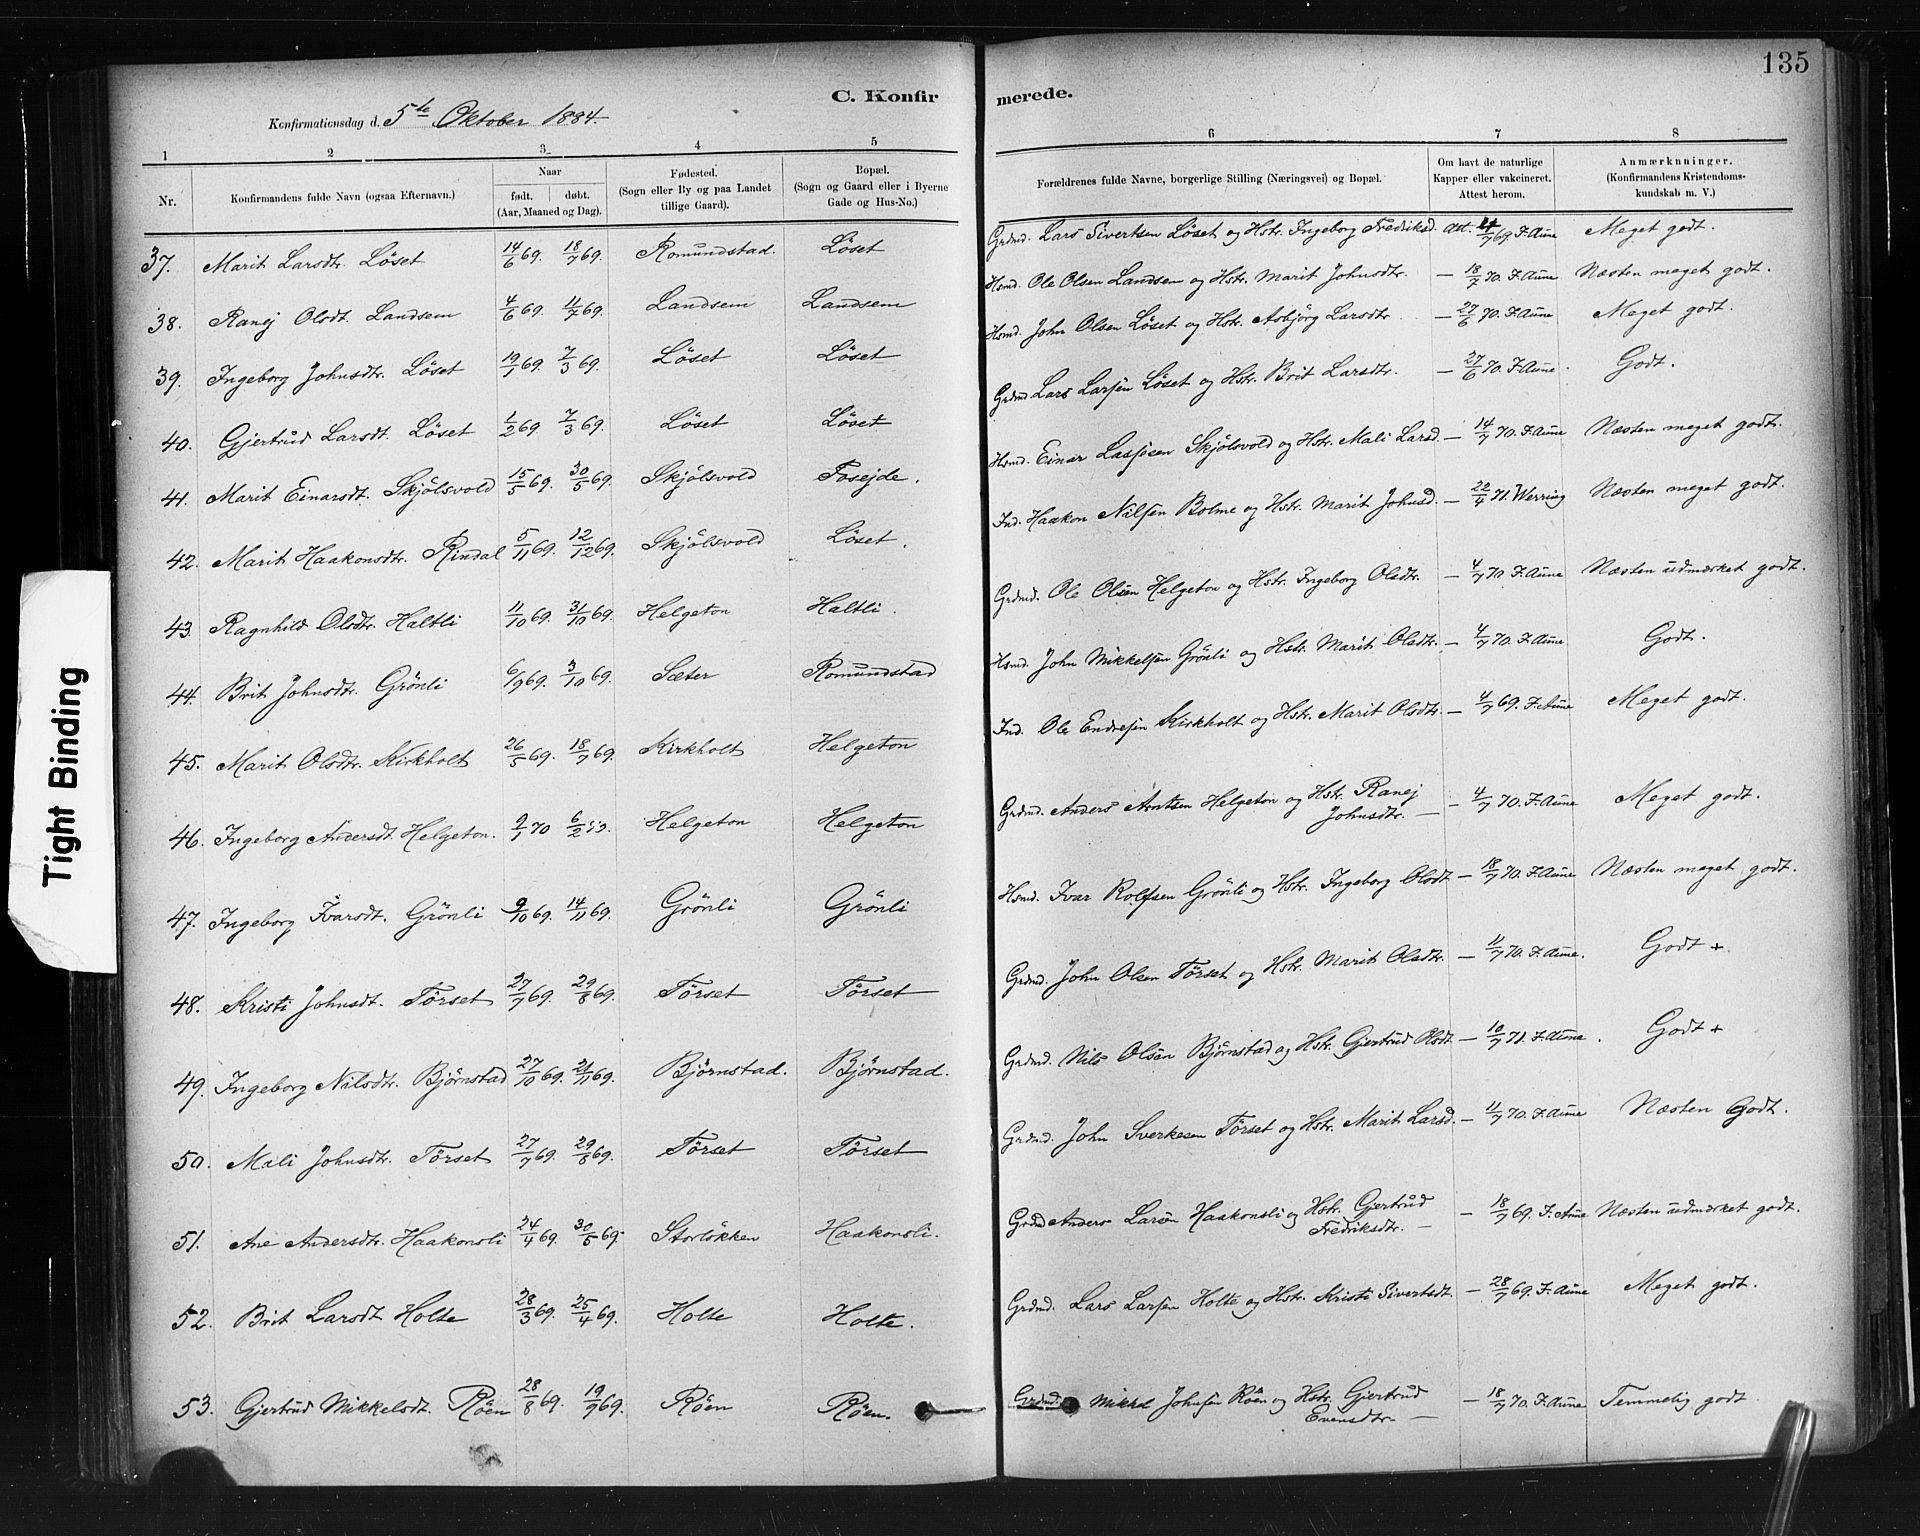 135
C. Konfirmerede.
Konfirmationsdag d. 5te Oktober 1884.
1 2 3 4 5 6 7 8
Nr. Konfirmandens fulde Navn (ogsaa Efternavn). Naar født. døbt. (Aar, Maaned og Dag). Fødested. (Sogn eller By og paa Landet tillige Gaard). Bopæl. (Sogn og Gaard eller i Byerne Gade og Hus-No.) Forældrenes fulde Navne, borgerlige Stilling (Næringsvei) og Bopæl. Om havt de naturlige Kapper eller vakcineret. Attest herom. Anmærkninger. (Konfirmandens Kristendomskundskab m. V.)
37. Marit Larsdtr. Löset 14/6 69. 18/7 69. Romundstad. Löset Grdmd. Lars Sivertsen Löset og Hstr. Ingeborg Fredriksd. att. /7 69. F. Aune Meget godt.
38. Ranej Olsdt. Landsem 4/6 69 11/7 69. Landsem Landsem Hsmd. Ole Olsen Landsem og Hstr. Marit Johnsdtr. — 18/7 70. F. Aune Næsten meget godt.
39. Ingeborg Johnsdtr. Löset 19/1 69. 7/3 69. Löset Löset Hsmd. John Olsen Löset og Hstr. Asbjörg Larsdtr — 27/6 70. F. Aune Meget godt.
40. Gjertrud Larsdt. Löset 1/2 69. 7/3 69. Löset Löset Grdmd. Lars Larsen Löset og Hstr. Brit Larsdtr. — 27/6 70. F. Aune. Godt.
41. Marit Einarsdt. Skjölsvold 15/5 69. 30/5 69. Skjölsvold Fosejde. Hsmd. Einar Lassesen Skjölsvold og Hstr. Mali Larsd. — 14/7 70. F. Aune Næsten meget godt.
42. Marit Haakonsdtr. Rindal 5/11 69. 12/12 69. Skjölsvold Löset. Ind. Haakon Nilsen Bolme og Hstr. Marit Johnsd. — 22/4 71. Werring Næsten meget godt.
43. Ragnhild Olsdtr. Haltli 11/10 69. 31/10 69. Helgeton Haltli. Grdmd. Ole Olsen Helgeton og Hstr. Ingeborg Olsdtr. — 4/7 70 F. Aune Næsten udmærket godt.
44. Brit Johnsdtr. Grönli 6/9 69. 3/10 69. Sæter Romundstad Hsmd. John Mikkelsen Grönli og Hstr. Marit Olsdtr. — 4/7 70. F. Aune Godt.
45. Marit Olsdtr. Kirkholt 26/5 69. 18/7 69. Kirkholt Helgeton Ind. Ole Endresen Kirkholt og Hstr. Marit Olsdtr — 4/7 69. F. Aune Meget godt.
46. Ingeborg Andersdt. Helgeton. 9/1 70 6/2 Helgeton Helgeton Grdmd. Anders Arntsen Helgeton og Hstr. Ranej Johnsdtr. — — 4/7 70. F. Aune Meget godt.
47. Ingeborg Ivarsdt. Grönli 9/10 69. 14/11 69. Grönli Grönli Hsmd. Ivar Rolfsen Grönli og Hstr. Ingeborg Olsdt — 18/7 70. F. Aune Næsten meget godt.
48. Kristi Johnsdt. Törset 27/7 69. 29/8 69. Törset Törset Grdmd. John Olsen Törset og Hstr. Marit Olsdtr. — 11/7 70. F. Aune. Godt +
49. Ingeborg Nilsdtr. Björnstad 27/10 69. 21/11 69. Björnstad. Björnstad. Grdmd. Nils Olsen Björnstad og Hstr. Gjertrud Olsdt. — 10/7 71. F. Aune. Godt +
50. Mali Johnsdtr. Törset 27/7 69. 29/8 69. Törset Törset Grdmd. John Sverkesen Törset og Hstr. Marit Larsd. — 11/7 70. F. Aune Næsten Godt.
51. Ane Andersdtr. Haakonsli 24/4 69. 30/5 69. Storlökken Haakonsli. Grdmd Anders Larsen Haakonsli og Hstr. Gjertrud Fredriksdtr. — — 18/7 69. F. Aune Næsten udmærket godt.
52. Brit Larsdt Holte 28/3 69. 25/4 69. Holte Holte. Grdmd. Lars Larsen Holte og Hstr. Kristi Sivertsdt. — 28/7 69. F. Aune Meget godt.
53. Gjertrud Mikkelsdt. Röen 28/8 69. 19/9 69. Röen Röen. Grdmd. Mikkel Johnsen Röen og Hstr. Gjertrud Evensdtr. — — 18/7 70. F. Aune Temmelig godt
Tight Binding